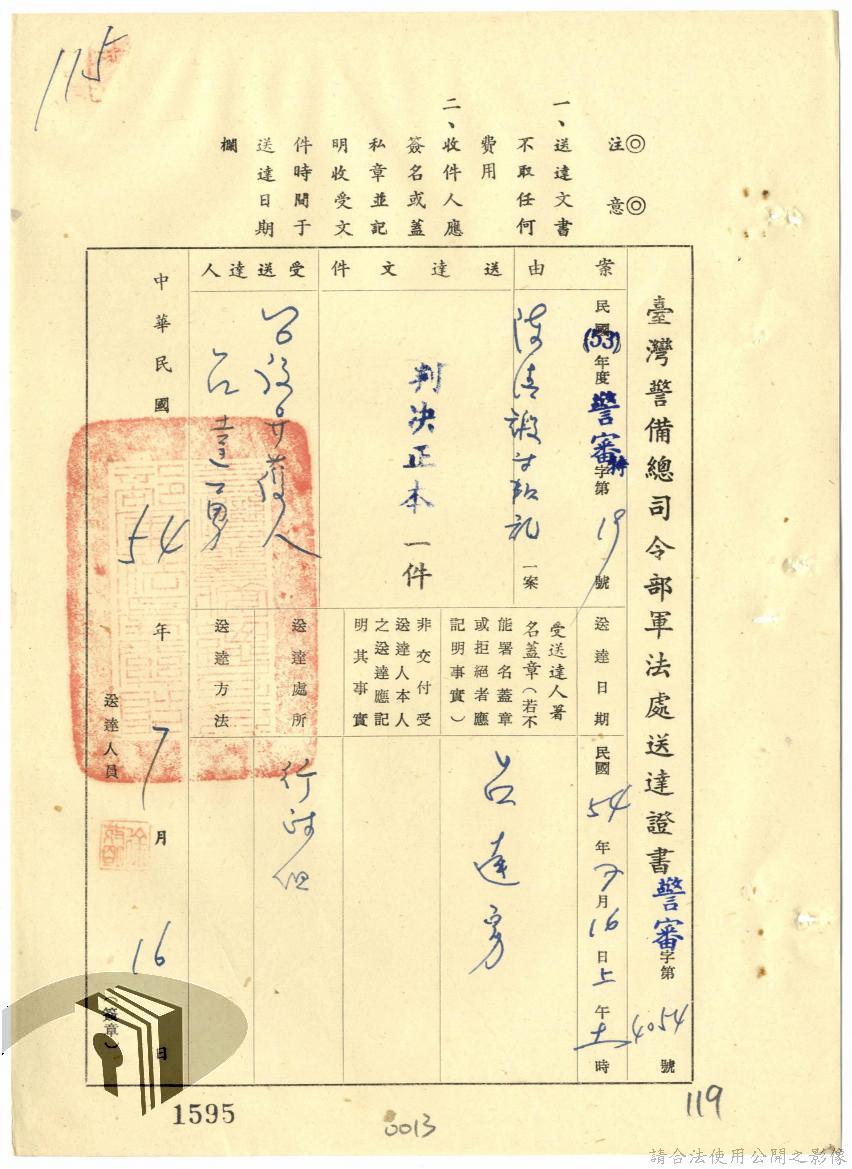 115
◎注意◎
一、送達文書
不取任何
費用
二、收件人應
簽名或蓋
私章並記
明收受文
件時間于
送達日期
欄
臺灣警備總司令部軍法處送達證書警審字第4054號
案由
民國(53)年度警審特字第19號
一案
送達文件
判決正本一件
受送達人
呂達勇
送達日期
民國54年7月16日上午十一時
受送達人署
名蓋章(若不
能署名蓋章
或拒絕者應
記明事實)
呂達勇
非交付受
送達人本人
之送達應記
明其事實
送達處所
送達方法
中華民國54年7月16日
送達人員
(簽章)
1595
0013
119
請合法使用公開之影像